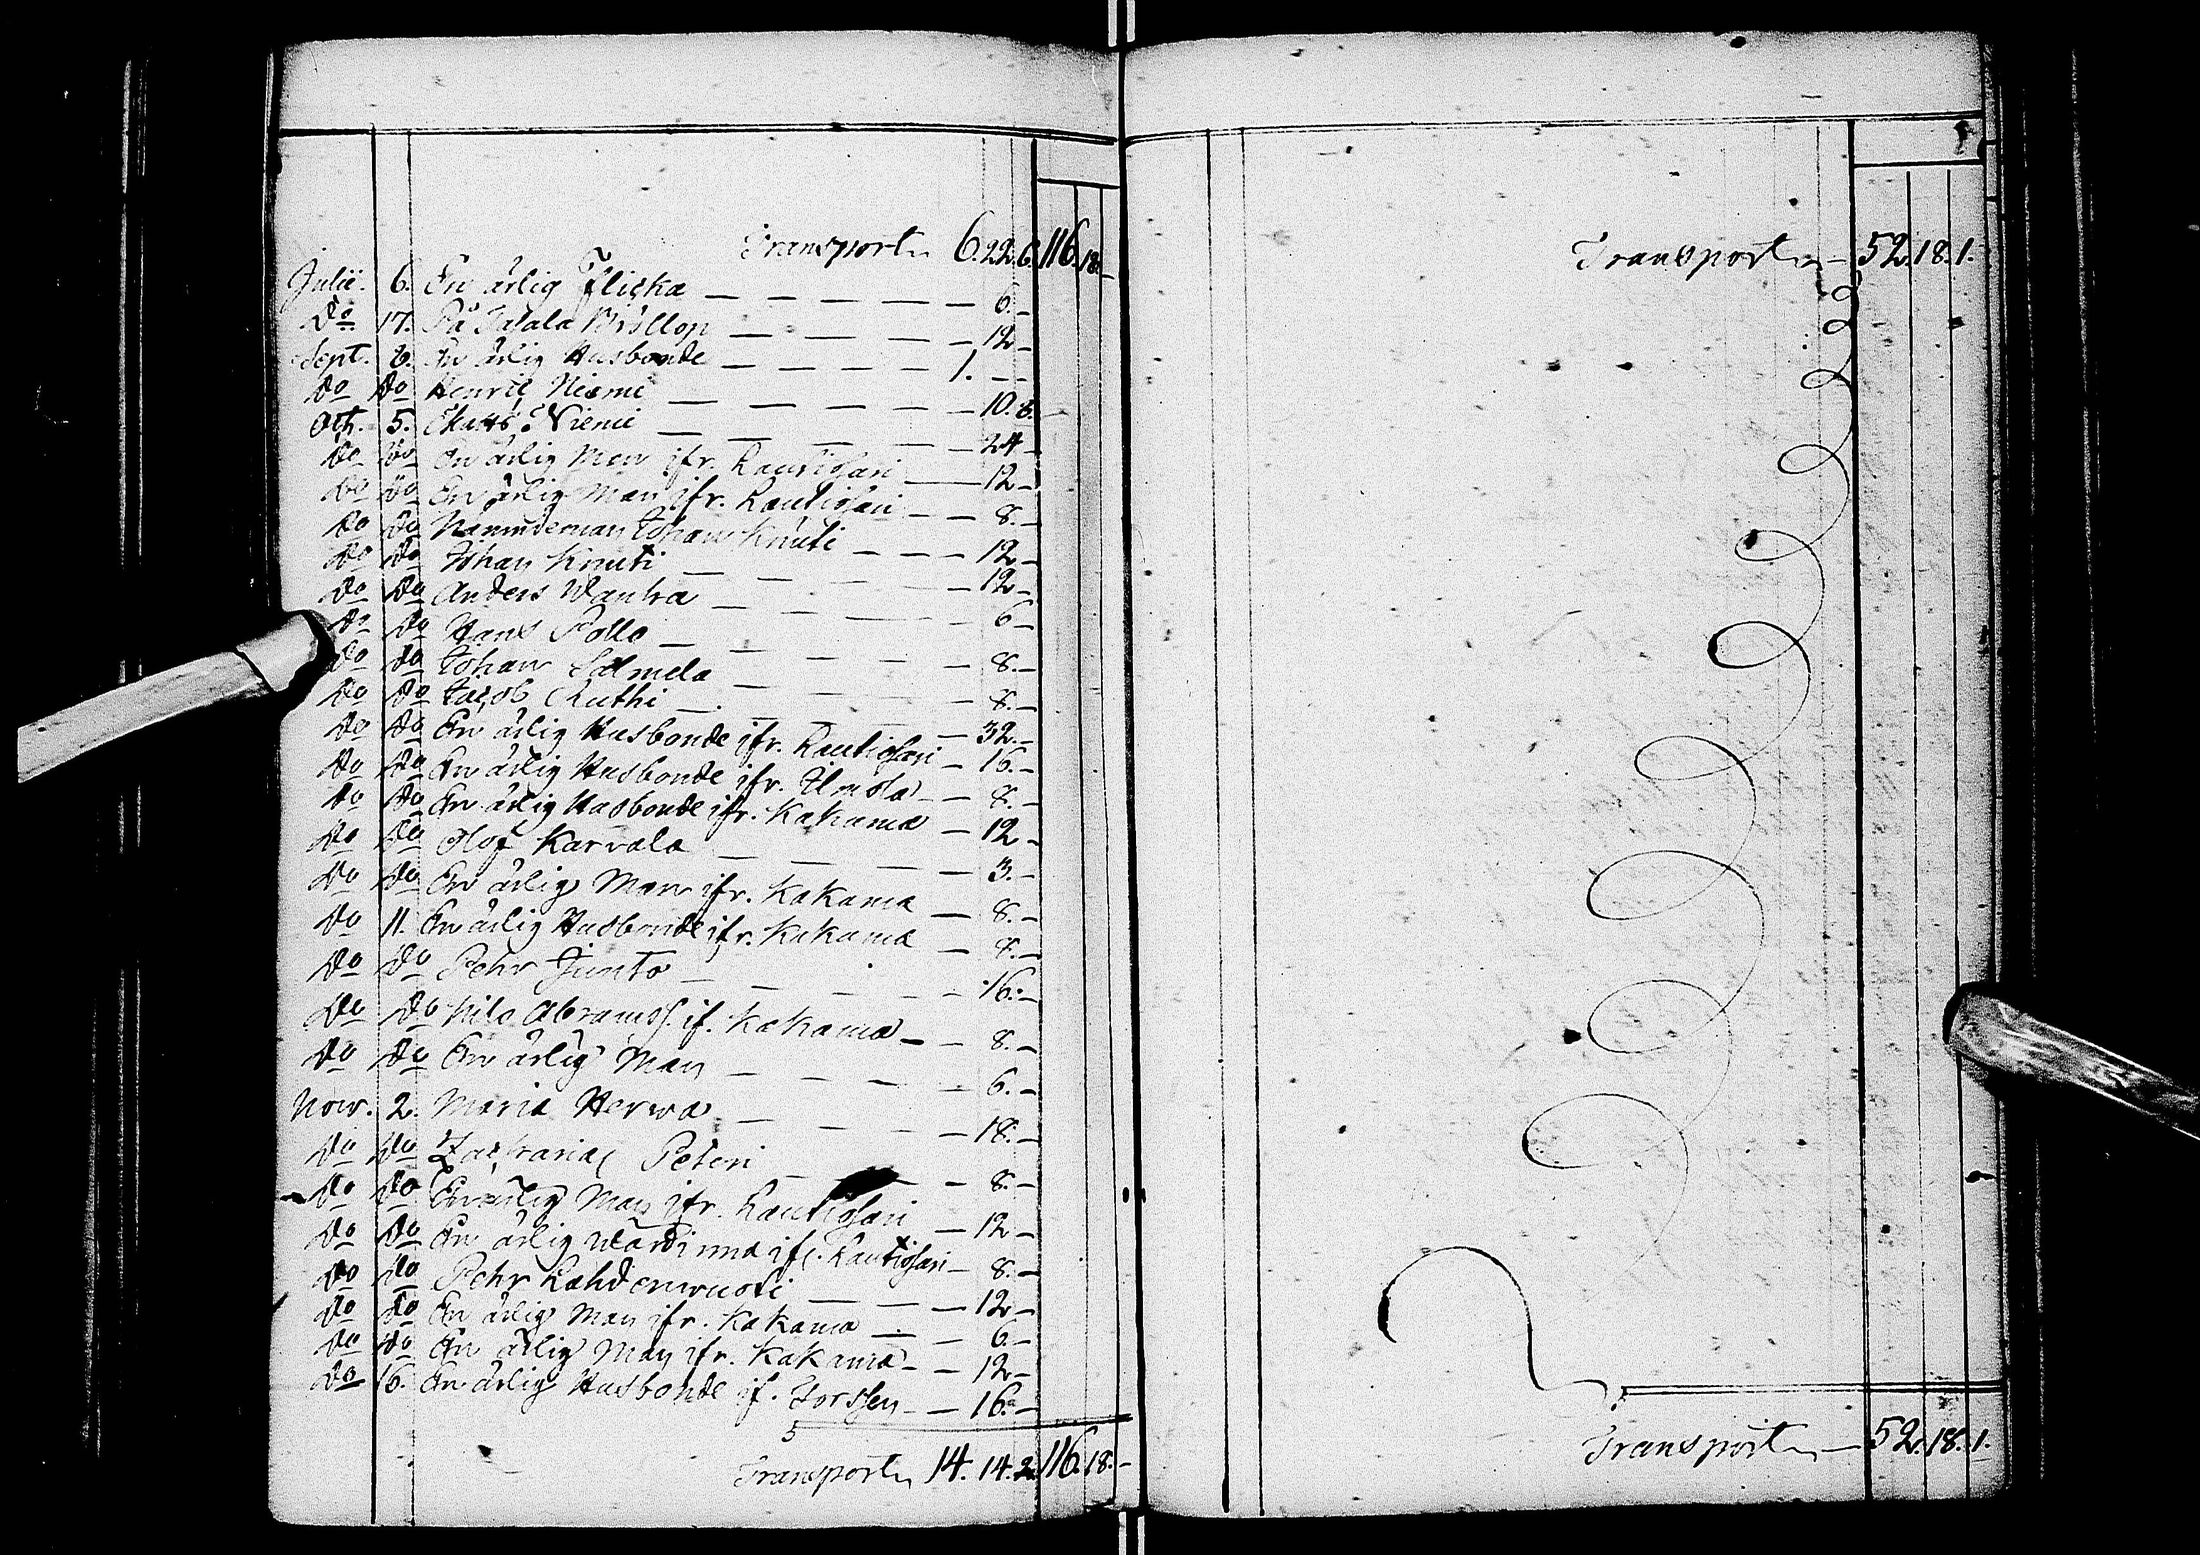 Transport 6. 22. 6. 116. 18. –
Julii. 6. En ärlig Flicka — 6. –
Do 17. På Bröllop — 12 –
Sept. 6. En ärlig Husbonde — 1. – –
Do Do Henric Niemi — 10. 8.
Oct. 5. Niemi — 24 –
Do Do En ärlig Man ifr. Rautiosari — 12 –
Do Do En ärlig Man ifr. Rautiosari — 8. –
Do Do Nämndeman Johan Knuti — 12 –
Do Do Johan Knuti — 12 –
Do Do Anders Wanha — 6 –
Do Do Hans Rollo — 8. –
Do Do Johan Salmela — 8. –
Do Do Jacob Ruthi — 32. –
Do Do En ärlig Husbonde ifr. Rautiosari – 16. –
Do Do En ärlig Husbonde ifr. Ilmola — 8. –
Do Do En ärlig Husbonde ifr. Kakama — 12 –
Do Do Olof Karvala — 3. –
Do Do En ärlig Man ifr. Kakama — 8. –
Do 11. En ärlig Husbonde ifr. Kakama — 8. –
Do Do Pehr Junto — 16. –
Do Do Nils Abramss. if. Kakama — 8. –
Do Do En ärlig Man — 6. –
Nov. 2. Maria Herwa — 18. –
Do Do Zacharias Peteri — 8. –
Do Do En ärlig Man ifr. Rautiosari — 12 –
Do Do En ärlig Wärdinna if. Rautiosari – 8. –
Do Do Pehr Lahdenwuoti — 12 –
Do Do En ärlig Man ifr. Kakama — 6. –
Do Do En ärlig Man ifr. Kakama — 12 –
Do 16. En ärlig Husbonde if. Torssen — 16. –
Transport 14. 14. 2. 116. 18. –
Transport — 52. 18. 1.
Transport — 52. 18. 1.